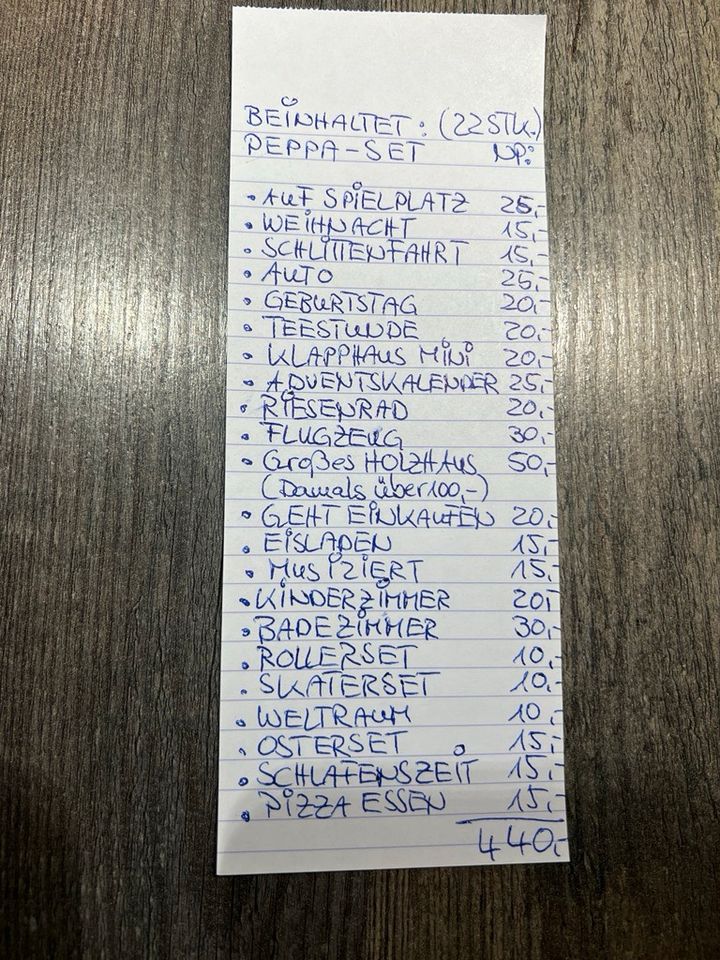 BEINHALTET: (22 STK.)
PEPPA-SET NP:
• AUF SPIELPLATZ 25,-
• WEIHNACHT 15,-
• SCHLITTENFAHRT 15,-
• AUTO 25,-
• GEBURTSTAG 20,-
• TEESTUNDE 20,-
• KLAPPHAUS MINI 20,-
• ADVENTSKALENDER 25,-
• RIESENRAD 20,-
• FLUGZEUG 30,-
• Großes HOLZHAUS 50,-
(Damals über 100,-)
• GEHT EINKAUFEN 20,-
• EISLADEN 15,-
• MUSIZIERT 15,-
• KINDERZIMMER 20,-
• BADEZIMMER 30,-
• ROLLERSET 10,-
• SKATERSET 10,-
• WELTRAUM 10,-
• OSTERSET 15,-
• SCHLAFENSZEIT 15,-
• PIZZA ESSEN 15,-
440,-